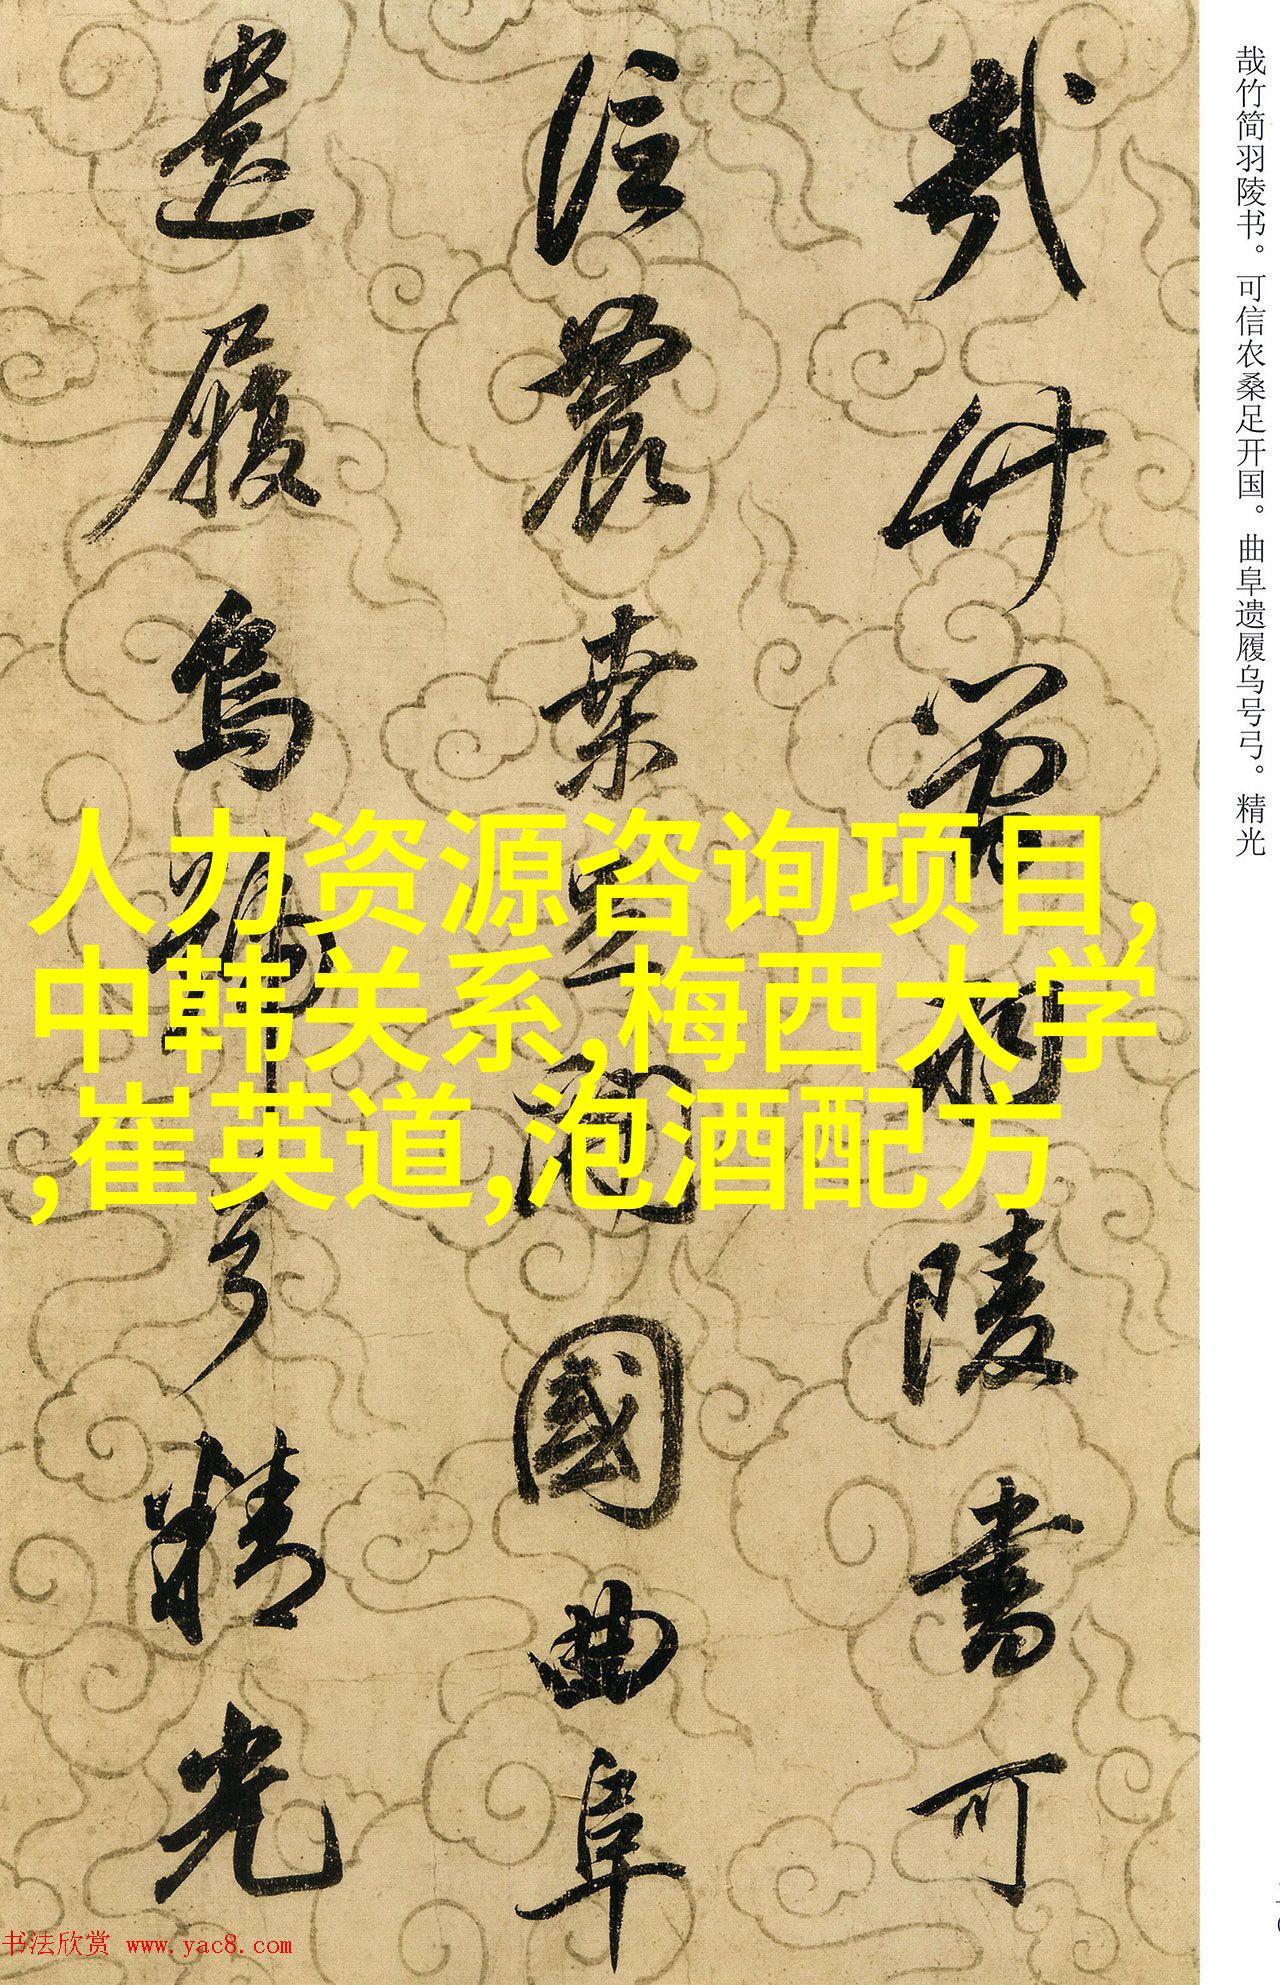 哉竹简羽陵书。可信农桑足开国。曲阜遗履乌号弓。精光
哉竹简羽陵書可
信農桒足開國曲阜
遺履烏號弓精光
人力资源咨询项目,
中韩关系,梅西大学
,崔英道,泡酒配方
书法欣赏 www.yac8.com